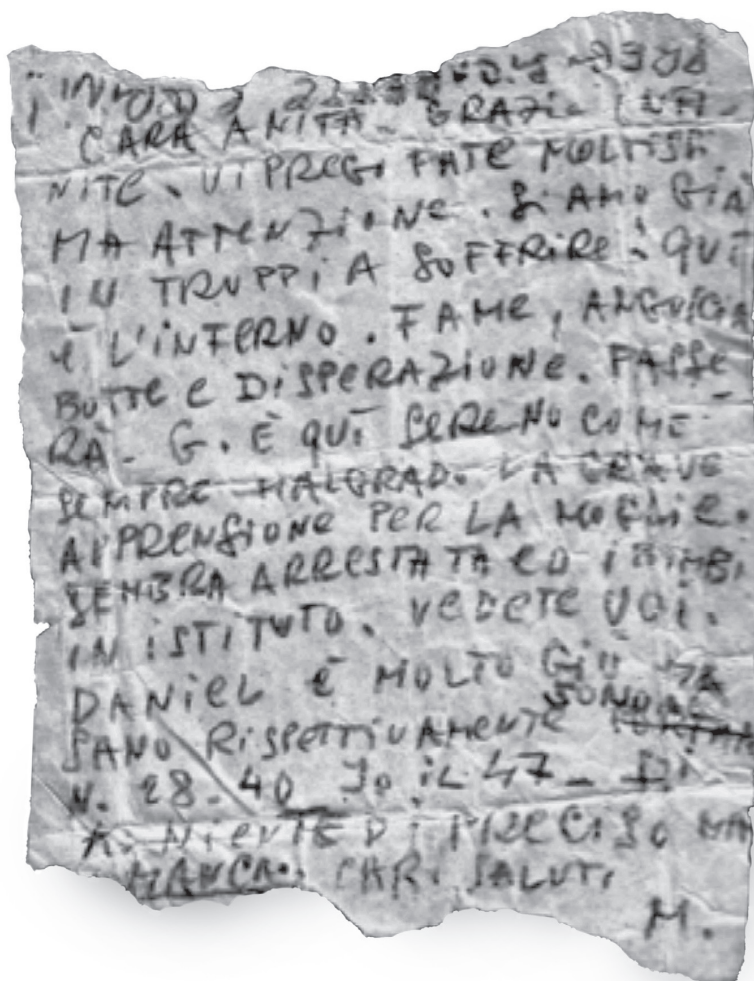 CARA ANITA. GRAZIE INFI-
NITE. VI PREGO FATE MOLTISSI
MA ATTENZIONE. SIAMO GIÀ
IN TRUPPI A SOFFRIRE. QUI
È L'INFERNO. FAME, ANGOSCIA
BOTTE E DISPERAZIONE. PASSE
RÀ. G. È QUI SERENO COME
SEMPRE MALGRADO LA GRAVE
APPRENSIONE PER LA MOGLIE.
SEMBRA ARRESTATA ED I BIMBI
IN ISTITUTO. VEDETE VOI.
DANIEL È MOLTO GIÙ MA
SANO RISPETTIVAMENTE SONO AL
N. 28-40 IO IL 47_ DI
A. NIENTE DI PRECISO MA
MANCA. CARI SALUTI
M.